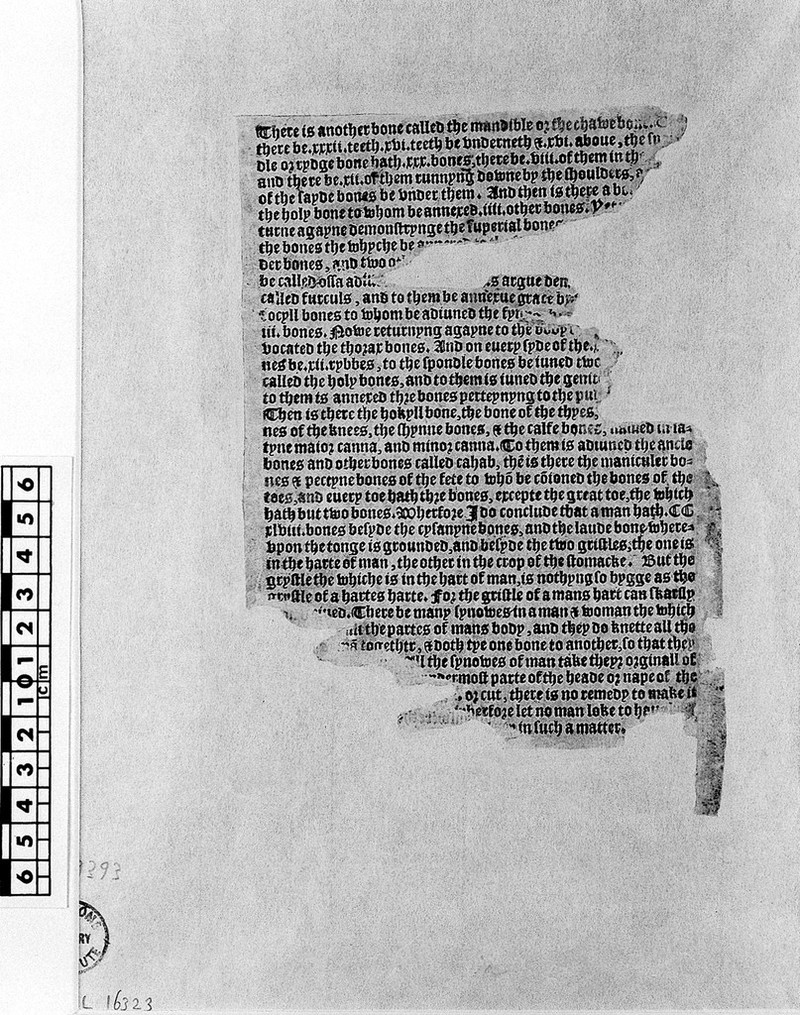 There is another bone called the mandible or the chawe
there be.xxxii.teeth.xvi.teeth be underneth &.xvi. aboue, the
dle or rydge bone hath.xxx.bones,there be.viii.of them in
and there be.xii.of them runnyng downe by the shoulders,
of the sayde bones be under them. And then is there a
the holy bone to whom be annexed.iiii.other bones.
turne agayne demonstrynge the superial
the bones the whyche be
der bones, and two
be called ossa
argue
called furculs, and to them be annexue grace
cocyll bones to whom be adiuned the
iii. bones. Nowe returnyng agayne to the
vocated the thorax bones. And on euery syde of the
nes be.xii.rybbes, to the spondle bones be iuned
called the holy bones, and to them is iuned the
to them is annexed thre bones perteynyng to the
Then is there the hokyll bone,the bone of the thyes,
nes of the knees, the shynne bones, & the calfe named in la-
tyne maior canna, and minor canna. To them is adiuned the ancle
bones and other bones called cahab, thē is there the maniculer bo-
nes & pectyne bones of the fete to whō be cōioned the bones of the
toes,and euery toe hath thre bones, excepte the great toe,the which
hath but two bones. Wherfore I do conclude that a man hath. CC
xlviii.bones besyde the cysanyne bones, and the laude bone where-
upon the tonge is grounded,and besyde the two gristles;the one is
in the harte of man, the other in the crop of the stomacke. But the
grystle the whiche is in the hart of man,is nothyng so bygge as the
grystle of a hartes harte. For the gristle of a mans hart can skarsly
There be many synowes in a man & woman the which
the partes of mans body, and they do knette all the
&doth tye one bone to another,so that they
the synowes of man take theyr orginall of
parte of the heade or nape of the
or cut, there is no remedy to make it
let no man loke to
in such a matter.
6 5 4 3 2 1 0 1 2 3 4 5 6
cm
L 16323